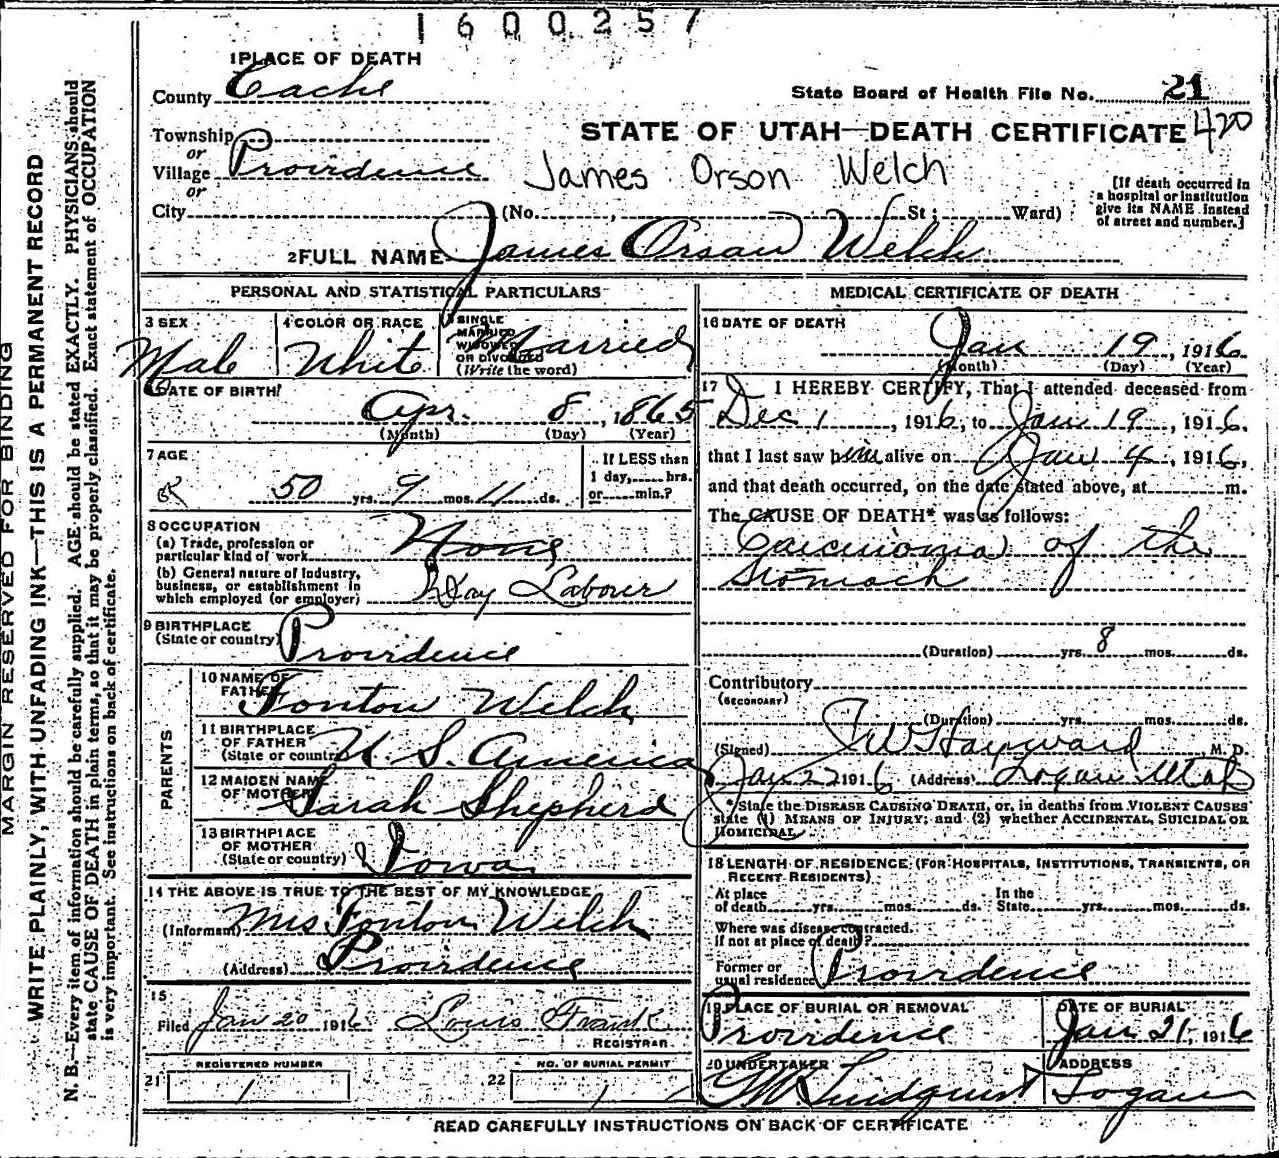 1600257
1 PLACE OF DEATH
County Cache
State Board of Health File No. 21
Township
or
Village Providence
or
City (No. , St; Ward)
STATE OF UTAH—DEATH CERTIFICATE 420
James Orson Welch
[If death occurred in
a hospital or institution
give its NAME instead
of street and number.]
2 FULL NAME James Orson Welch
PERSONAL AND STATISTICAL PARTICULARS
3 SEX Male
4 COLOR OR RACE White
5 SINGLE
MARRIED
WIDOWED
OR DIVORCED
(Write the word) Married
6 DATE OF BIRTH
Apr. 8, 1865
(Month) (Day) (Year)
7 AGE
50 yrs. 9 mos. 11 ds.
If LESS than
1 day, hrs.
or min.?
8 OCCUPATION
(a) Trade, profession or
particular kind of work None
(b) General nature of industry,
business, or establishment in
which employed (or employer) Day Labourer
9 BIRTHPLACE
(State or country) Providence
PARENTS
10 NAME OF
FATHER Fonton Welch
11 BIRTHPLACE
OF FATHER
(State or country) U. S. America
12 MAIDEN NAME
OF MOTHER Sarah Shepherd
13 BIRTHPLACE
OF MOTHER
(State or country) Iowa
14 THE ABOVE IS TRUE TO THE BEST OF MY KNOWLEDGE
(Informant) Mrs Fonton Welch
(Address) Providence
15
Filed Jan 20 1916 Louis Frank
REGISTRAR
REGISTERED NUMBER
21 1
NO. OF BURIAL PERMIT
22 1
MEDICAL CERTIFICATE OF DEATH
16 DATE OF DEATH
Jan 19, 1916
(Month) (Day) (Year)
17 I HEREBY CERTIFY, That I attended deceased from
Dec 1, 1916, to Jan 19, 1916.
that I last saw him alive on Jan 4, 1916,
and that death occurred, on the date stated above, at m.
The CAUSE OF DEATH* was as follows:
Carcinoma of the
Stomach
(Duration) yrs. 8 mos. ds.
Contributory
(SECONDARY)
(Duration) yrs. mos. ds.
(Signed) J W Hayward, M. D.
Jan 22 1916 (Address) Logan Utah
*State the DISEASE CAUSING DEATH, or, in deaths from VIOLENT CAUSES
state (1) MEANS OF INJURY; and (2) whether ACCIDENTAL, SUICIDAL OR
HOMICIDAL.
18 LENGTH OF RESIDENCE, (FOR HOSPITALS, INSTITUTIONS, TRANSIENTS, OR
RECENT RESIDENTS)
At place
of death yrs. mos. ds. In the
State yrs. mos. ds.
Where was disease contracted.
if not at place of death?
Former or
usual residence Providence
19 PLACE OF BURIAL OR REMOVAL
Providence
DATE OF BURIAL
Jan 21, 1916
20 UNDERTAKER
Lindquist
ADDRESS
Logan
READ CAREFULLY INSTRUCTIONS ON BACK OF CERTIFICATE
MARGIN RESERVED FOR BINDING
WRITE PLAINLY, WITH UNFADING INK—THIS IS A PERMANENT RECORD
N. B.—Every item of information should be carefully supplied. AGE should be stated EXACTLY. PHYSICIANS should
state CAUSE OF DEATH in plain terms, so that it may be properly classified. Exact statement of OCCUPATION
is very important. See instructions on back of certificate.